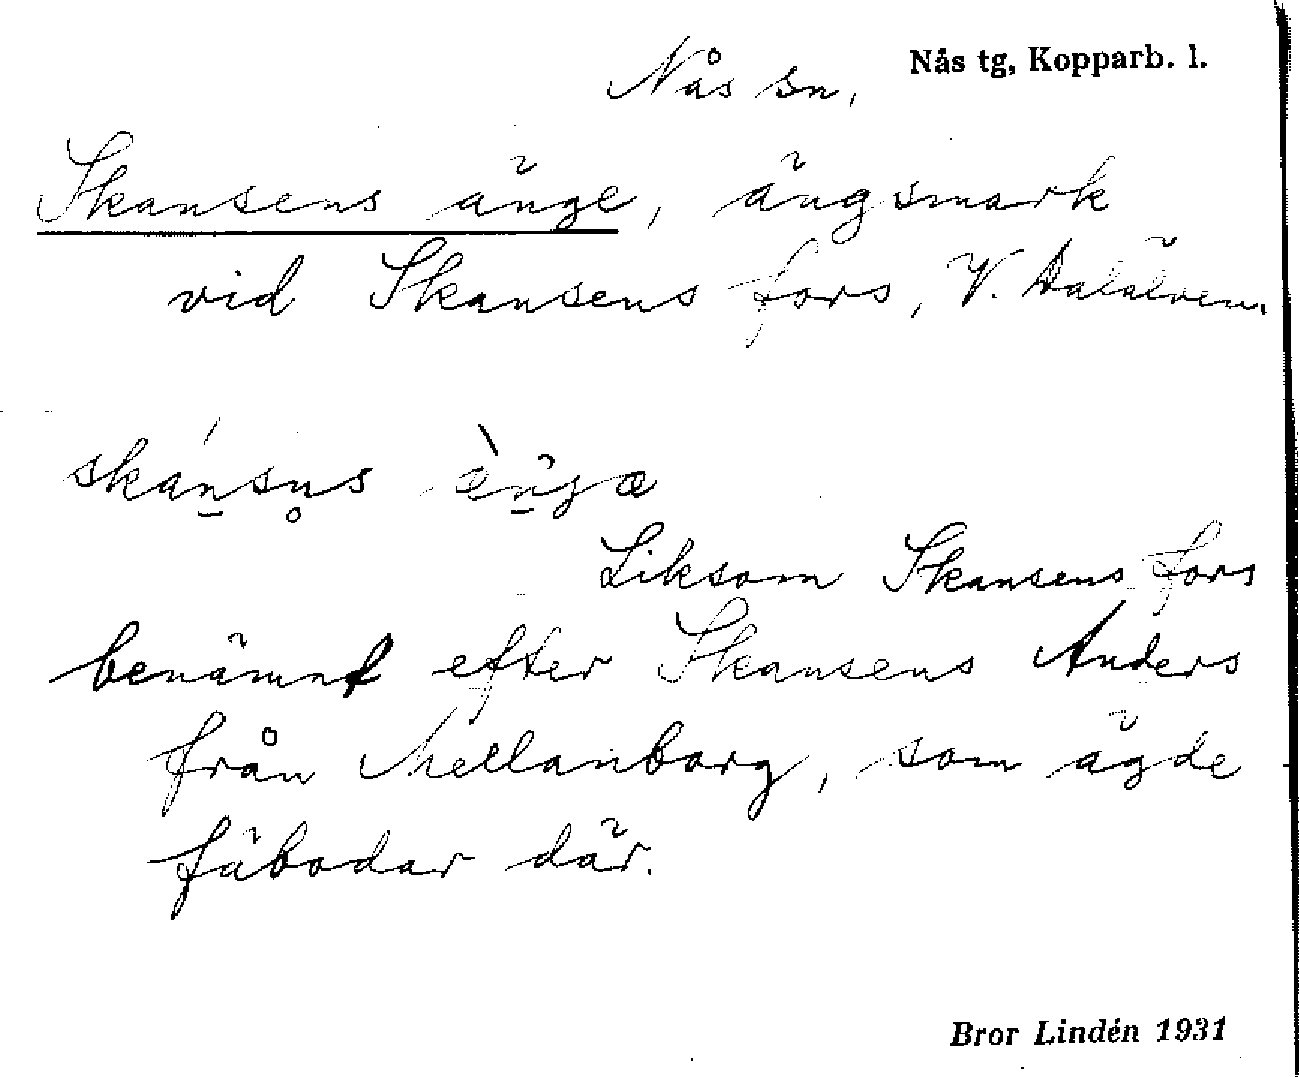 Nås sn, Nås tg, Kopparb. l.
Skansens änge, ängsmark
vid Skansens fors, V. Dalälven.
skán̠sn̥s
Liksom Skansens fors
benämnt efter Skansens Anders
från Mellanborg, som ägde
fäbodar där.
Bror Lindén 1931